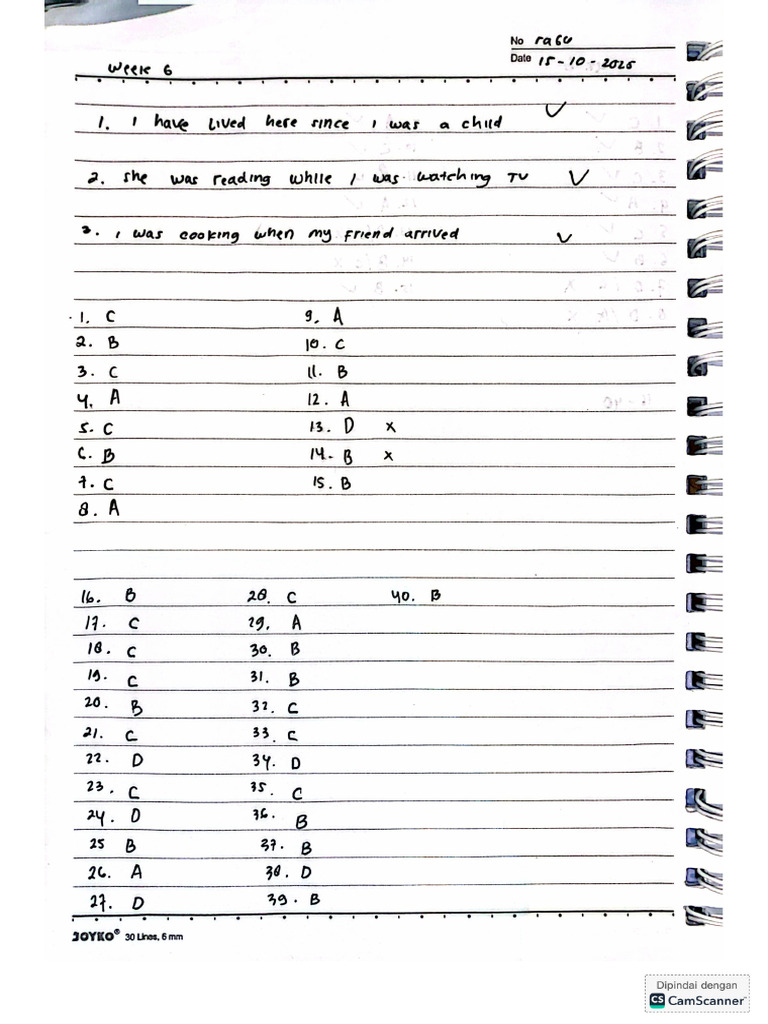 No rabu
Date 15-10-2025
Week 6
1. I have lived here since I was a child ✓
2. She was reading while I was watching TV ✓
3. I was cooking when my friend arrived ✓
1. C 9. A
2. B 10. C
3. C 11. B
4. A 12. A
5. C 13. D x
6. B 14. B x
7. C 15. B
8. A
16. B 28. C 40. B
17. C 29. A
18. C 30. B
19. C 31. B
20. B 32. C
21. C 33. C
22. D 34. D
23. C 35. C
24. D 36. B
25 B 37. B
26. A 38. D
27. D 39. B
JOYKO® 30 Lines, 6 mm
Dipindai dengan
CS CamScanner